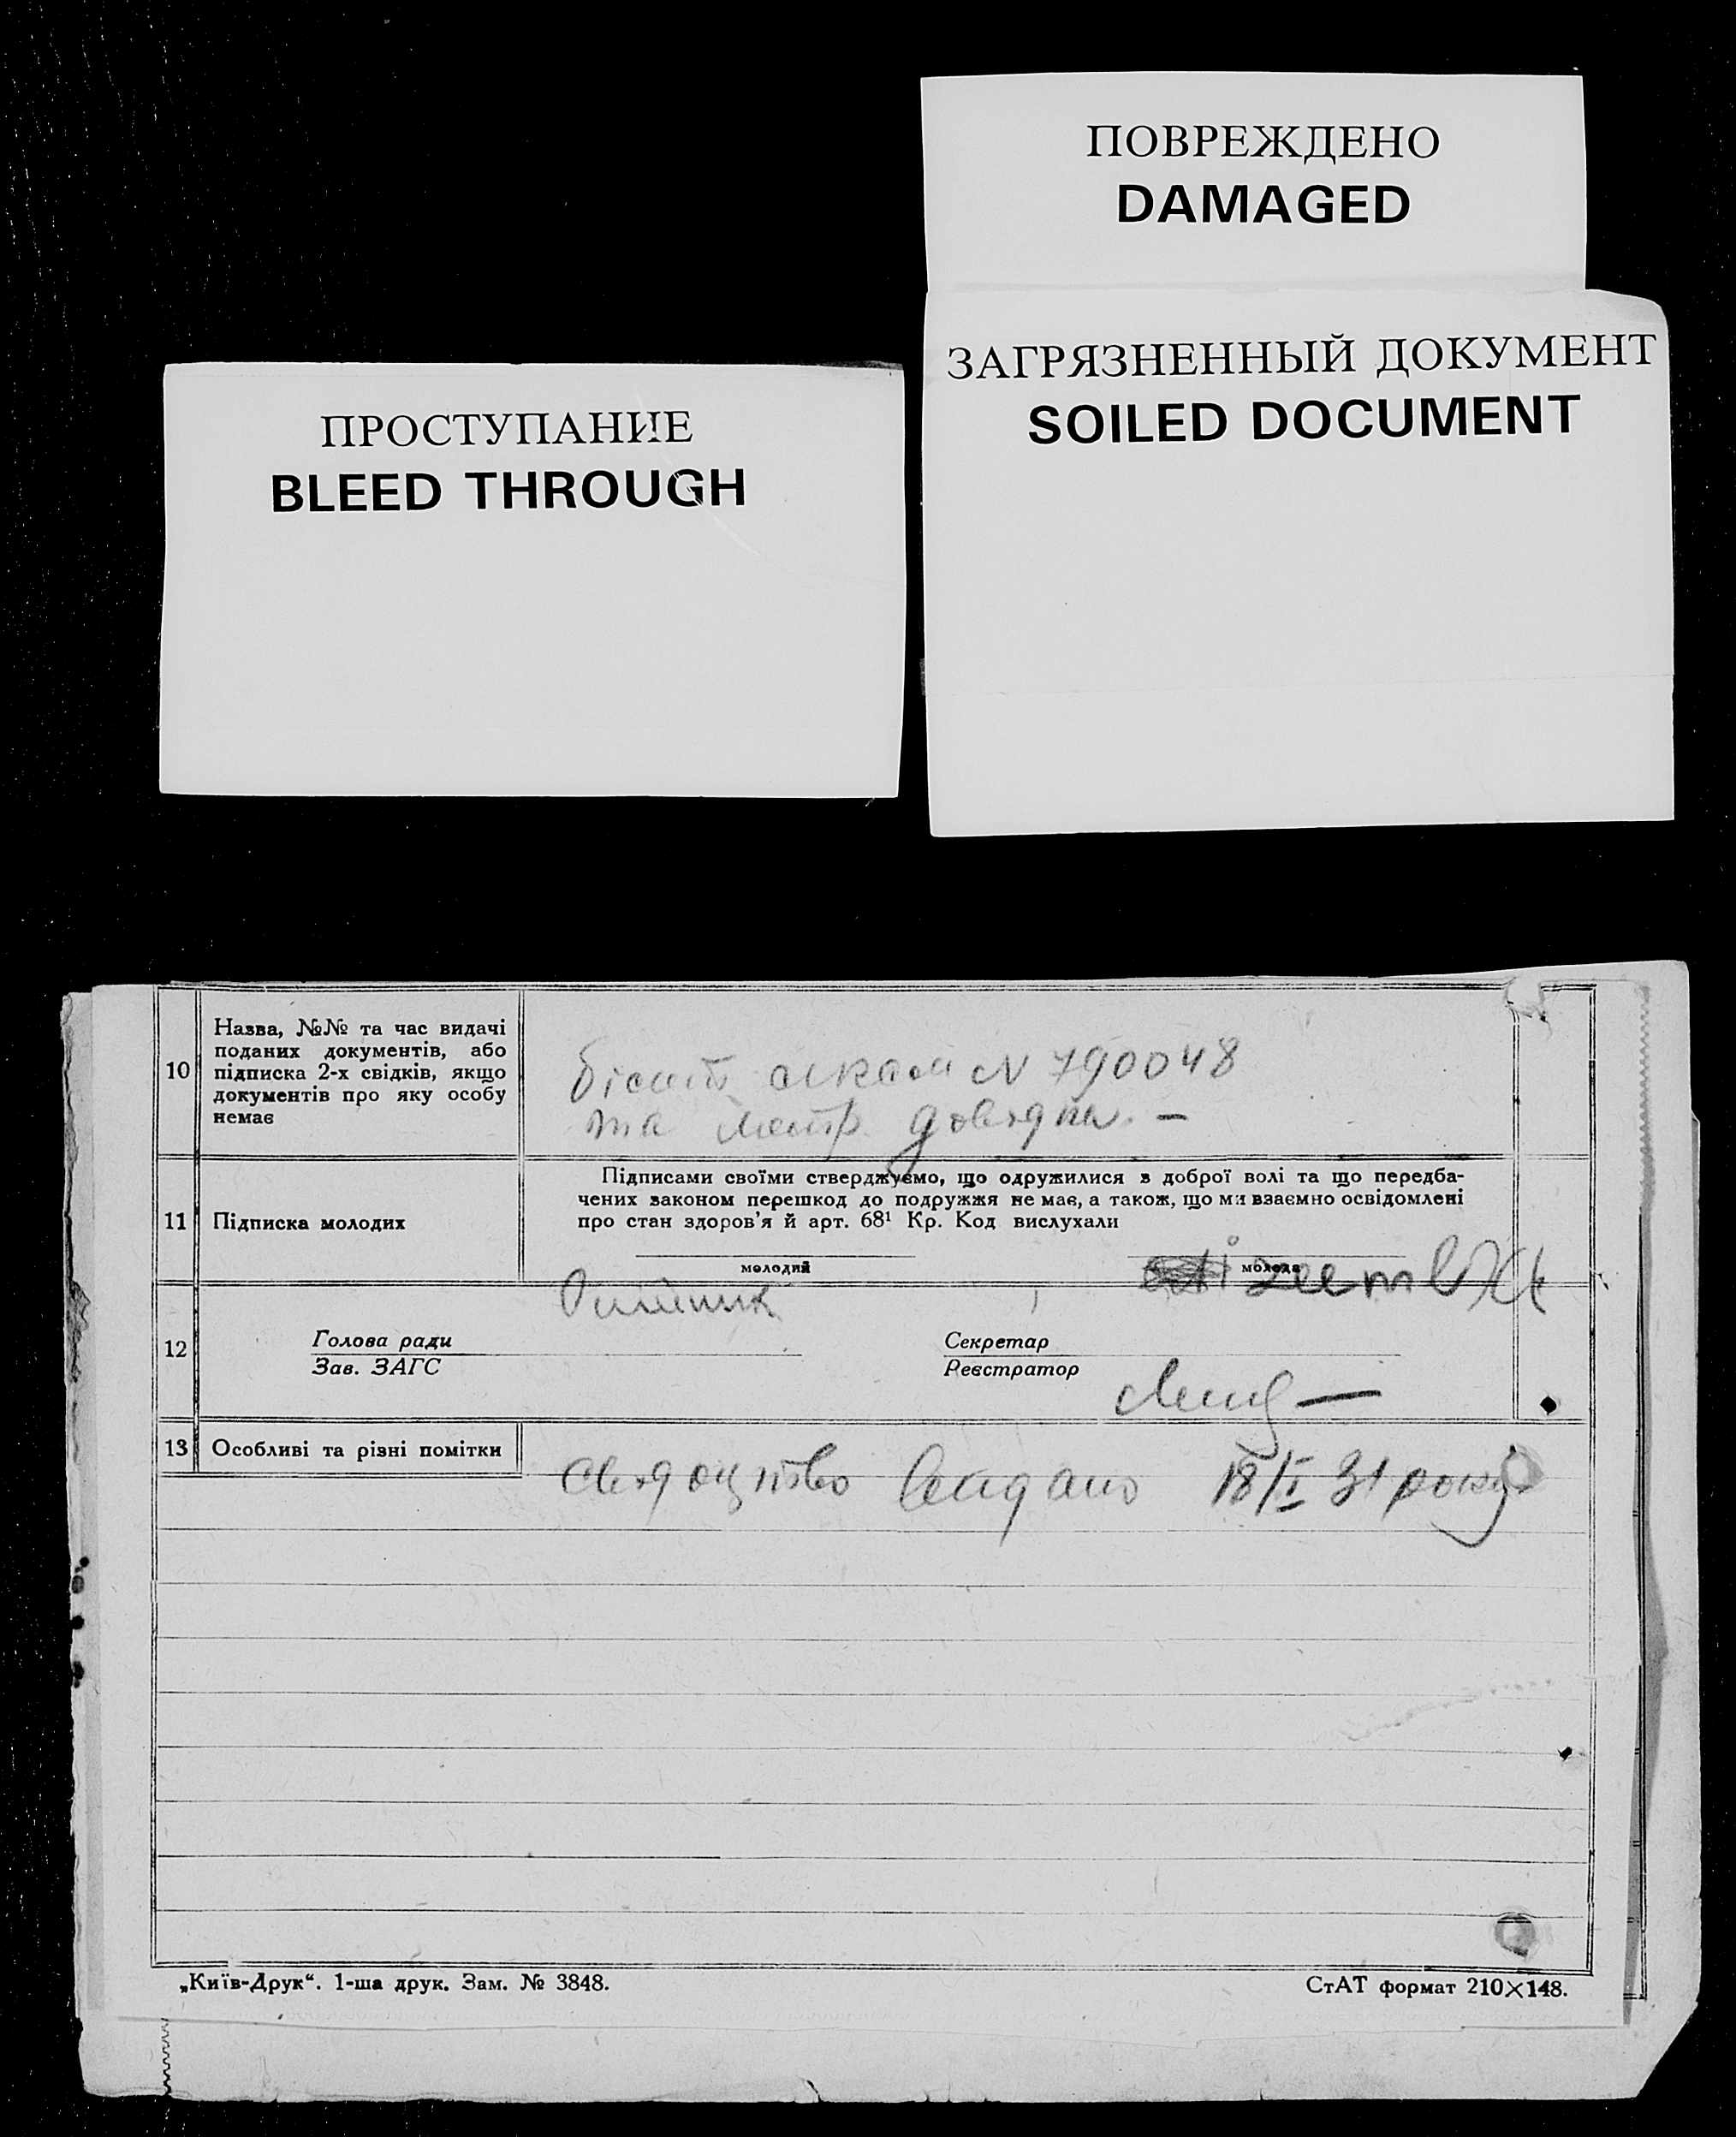 ПОВРЕЖДЕНО
DAMAGED
ЗАГРЯЗНЕННЫЙ ДОКУМЕНТ
SOILED DOCUMENT
ПРОСТУПАНИЕ
BLEED THROUGH
10
Назва, №№ та час видачі
поданих документів, або
підписка 2-х свідків, якщо
документів про яку особу
немає
N 790048
та метр. довідки. —
11
Підписка молодих
Підписами своїми стверджуємо, що одружилися з доброї волі та що передба-
чених законом перешкод до подружжя не має, а також, що ми взаємно освідомлені
про стан здоров'я й арт. 68¹ Кр. Код вислухали
молодий
молода
12
Голова ради
Зав. ЗАГС
Секретар
Реєстратор
13
Особливі та різні помітки
Свідоцтво видано 18/I 31 року
„Київ-Друк“. 1-ша друк. Зам. № 3848.
СтАТ формат 210×148.